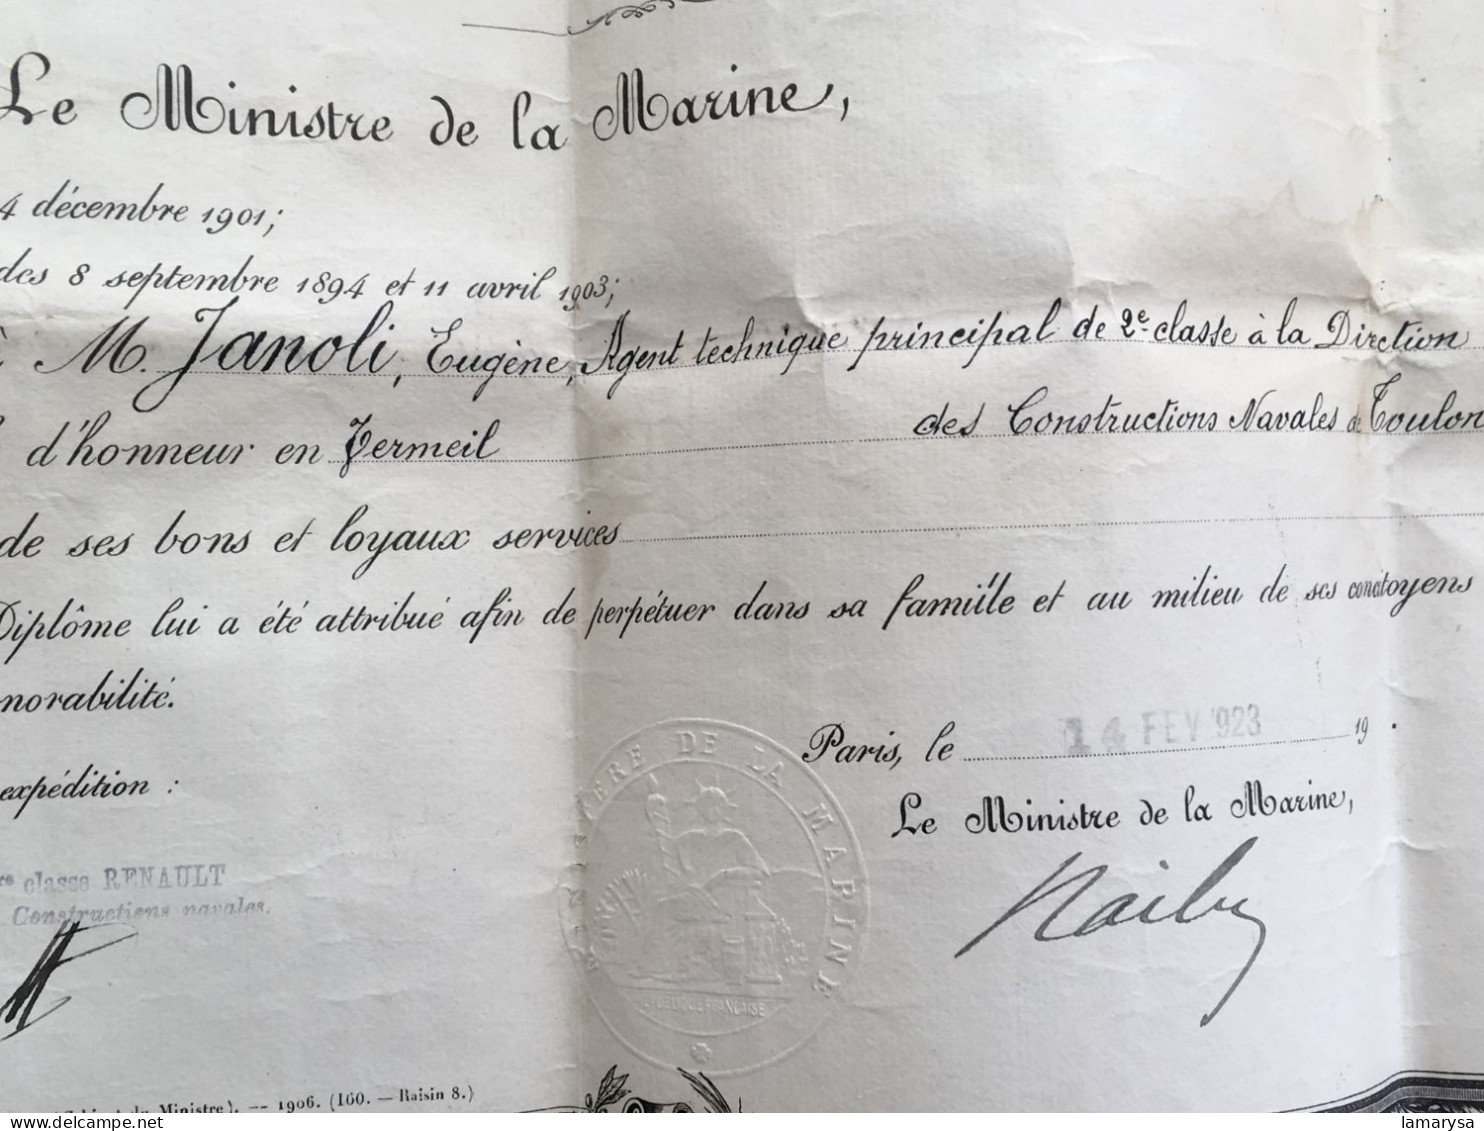 Le Ministre de la Marine,
4 décembre 1901;
des 8 septembre 1894 et 11 avril 1903;
à M. Janoli, Eugène, Agent technique principal de 2e classe à la Dirction
des Constructions Navales de Toulon
d'honneur en Vermeil
de ses bons et loyaux services
Diplôme lui a été attribué afin de perpétuer dans sa famille et au milieu de ses concitoyens
norabilité.
Paris, le 14 FEV 1923 19 .
expédition :
Le Ministre de la Marine,
re classe RENAULT
Constructions navales.
MINISTERE DE LA MARINE
REPUBLIQUE FRANCAISE
Raiberti
(Cabinet du Ministre). — 1906. (160. — Raisin 8.)
delcampe.net
lamarysa